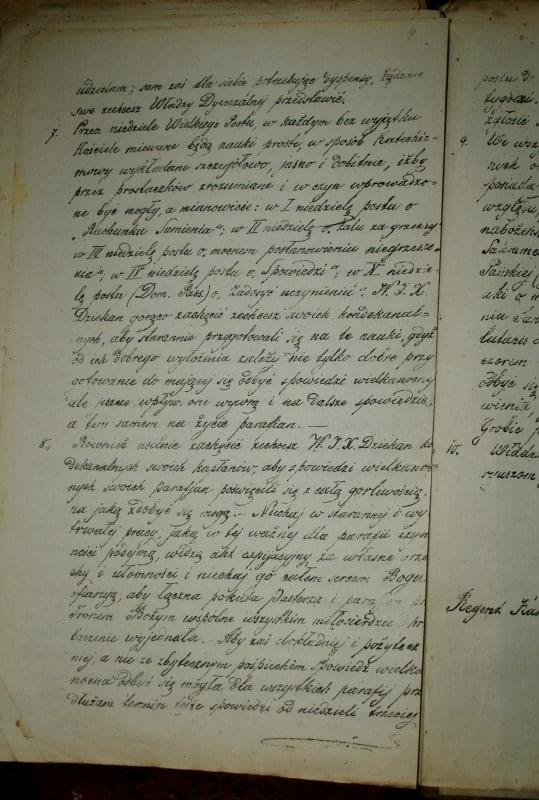 4
udzielam; sam zaś dla siebie potrzebując dyspensy, żądanie
swe zechcesz Władzy Dyecezalnej przedstawić.
7. Przez niedziele Wielkiego Postu, w każdym bez wyjątku
Kościele miewane będą nauki proste, w sposób katechiz-
mowy wykładane szczegółowo, jasno i dobitnie, iżby
przez prostaczków zrozumiane i w czyn wprowadzo-
ne być mogły, a mianowicie: w I niedzielę postu o
„Rachunku Sumienia"; w II niedzielę o „Żalu za grzechy
w III niedzielę postu o „mocnem postanowieniu niegrzesze-
nia"; w IV niedzielę postu o „Spowiedzi"; w V niedzie-
lę postu (Dom. Pass.) o „Zadosyć uczynieniu". W. J. X.
Dziekan gorąco zachęcić zechcesz swoich kondekanal-
nych, aby starannie przygotowali się na te nauki, gdyż
od ich dobrego wyłożenia zależy nie tylko dobre przy
gotowanie do mającej się odbyć spowiedzi wielkanocnej
ale wpływ one wywrą i na dalsze spowiedzie,
a tem samem na życie parafian. —
8., Również usilnie zachęcić zechcesz W. J. X. Dziekan ko
dekanalnych swoich kapłanów, aby spowiedzi wielkanoc
nych swoich parafjan poświęcili się z całą gorliwością,
na jaką zdobyć się mogą. — Niechaj w starannej i wy
trwałej pracy, jaką w tej ważnej dla parafii czyn
ności podejmą, widzą akt expijacyjny za własne grze
chy i ułomności i niechaj go całem sercem Bogu
ofiarują, aby łączna pokuta Pasterza i
Tronem Bożym wspólne wszystkim miłosierdzie i
baczenie wyjednała. — Aby zaś dokładniej i pożytecz
niej, a nie ze zbytecznym pośpiechem spowiedź wielka
nocna odbyć się mogła dla wszystkich parafij prze
dłużam termin tejże spowiedzi od niedzieli trzeciej
postu do
zgłosić
9. We wsz
nych o
posiada
względu,
nabożeńs
Sakrame
Pańskiej (
czorem
odbyć się
wienia,
Grobie p
10. Władz
Regens